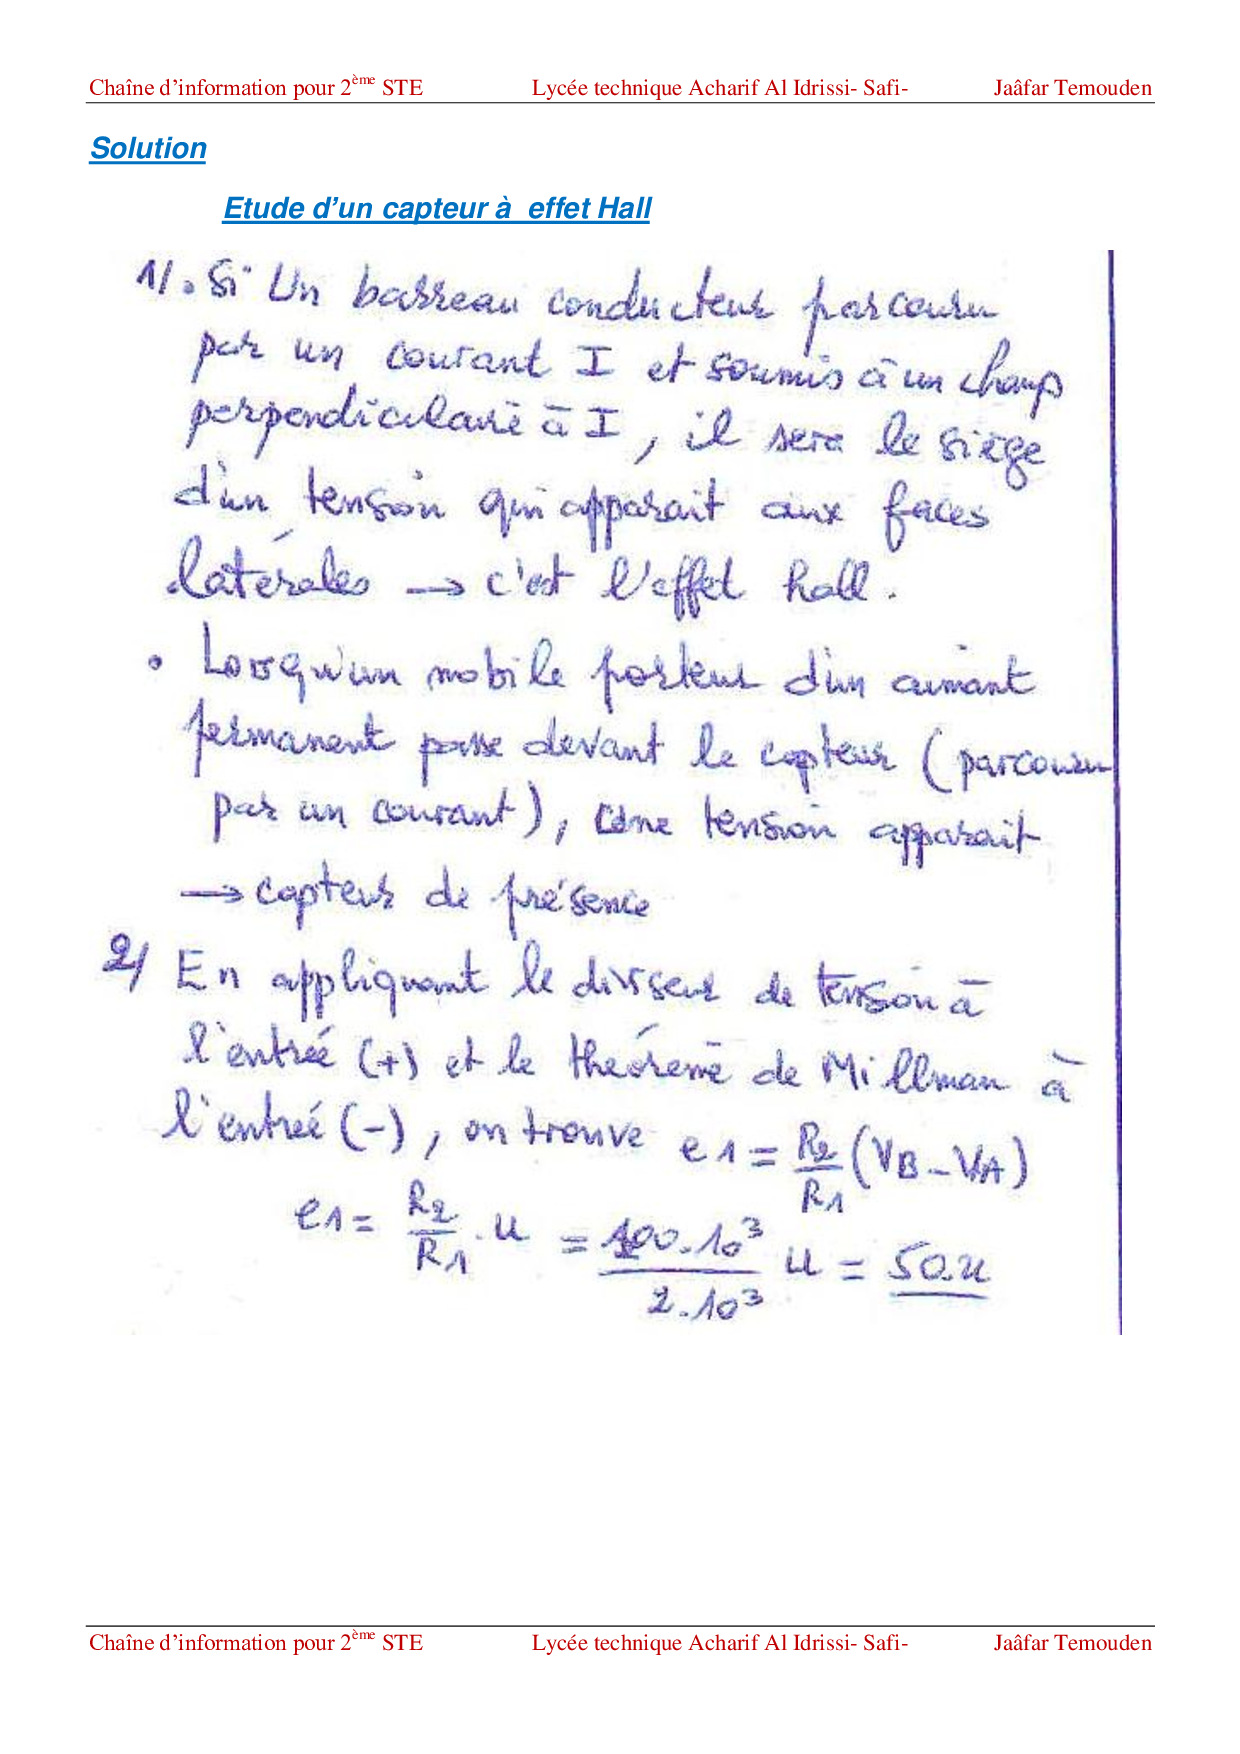 Chaîne d'information pour 2ème STE Lycée technique Acharif Al Idrissi- Safi- Jaâfar Temouden
Solution
Etude d'un capteur à effet Hall
1/. Si Un barreau conducteur parcouru
par un courant I et soumis à un champ
perpendiculaire à I, il sera le siège
d'un tension qui apparait aux faces
latérales → c'est l'effet hall.
• Lorsqu'un mobile porteur d'un aimant
permanent passe devant le capteur (parcouru
par un courant), une tension apparait
→ capteur de présence
2/ En appliquant le diviseur de tension à
l'entrée (+) et le théorème de Millman à
l'entreé (-), on trouve e1 = R2/R1 (VB - VA)
e1 = R2/R1 . u = 100.10³/2.10³ u = 50.u
Chaîne d'information pour 2ème STE Lycée technique Acharif Al Idrissi- Safi- Jaâfar Temouden